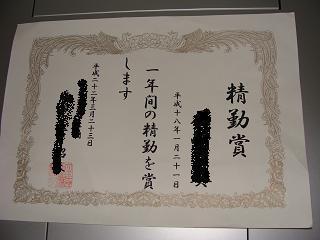 精勤賞
平成十八年一月二十一日
一年間の精勤を賞
します
平成二十二年三月二十三日